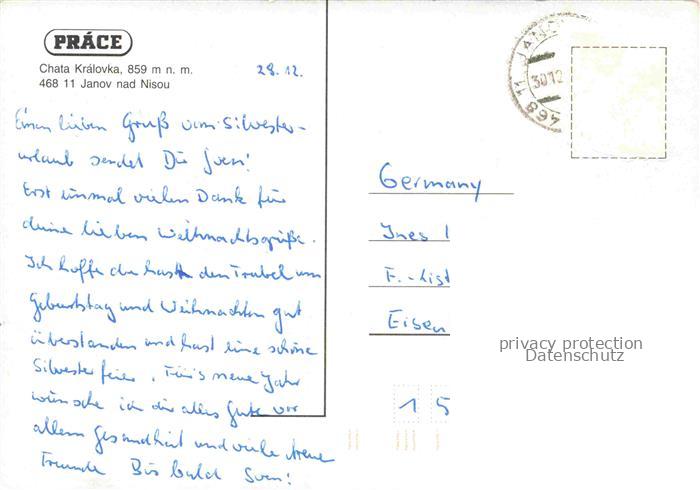 PRÁCE
Chata Královka, 859 m n. m.
468 11 Janov nad Nisou
28.12.
Einen lieben Gruß vom Silvester-
urlaub sendet Dir Sven!
Erst einmal vielen Dank für
deine lieben Weihnachtsgrüße.
Ich hoffe du hast den Trubel um
Geburtstag und Weihnachten gut
überstanden und hast eine schöne
Silvesterfeier. Für's neue Jahr
wünsche ich dir alles Gute vor
allem Gesundheit und viele treue
Freunde Bis bald Sven!
468 11 JANOV
30.12
Germany
Ines
F.-List
Eisen
privacy protection
Datenschutz
1 5